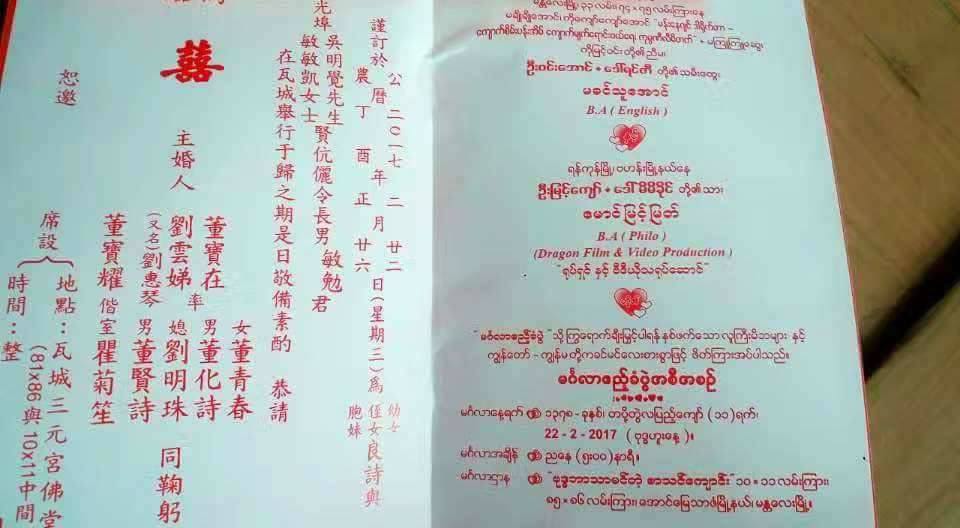 謹訂於公曆二〇一七年二月廿二日(星期三)為
農丁酉正廿六
幼女
侄女
胞妹
良詩與
光埠吳明覺先生
敏敏凱女士
賢伉儷令長男敏勉君
在瓦城舉行于歸之期是日敬備素酌 恭請
囍
恕邀
主婚人
董寶在
劉雲娣
(又名)劉惠琴
率
女董青春
男董化詩
媳劉明珠
男董賢詩
董寶耀 偕室瞿菊笙
同鞠躬
席設
地點：瓦城三元宮佛堂
(81x86與10x11中間
時間：整
မန္တလေးမြို့၊ ၃၃ လမ်း၊ ၇၄ × ၇၅ လမ်းကြားနေ
တို့၏ ညီမ၊
ဦးဝင်းအောင် + ဒေါ်ရင်တီ တို့၏ သမီးထွေး
မခင်သူအောင်
B.A ( English )
ရန်ကုန်မြို့၊ ဗဟန်းမြို့နယ်နေ
ဦးမြင့်ကျော် + ဒေါ်မိမိခိုင် တို့၏ သား
မောင်မြင့်မြတ်
B.A ( Philo )
(Dragon Film & Video Production )
"ရုပ်ရှင် နှင့် ဗီဒီယိုသရုပ်ဆောင်"
"မင်္ဂလာဧည့်ခံပွဲ" သို့ ကြွရောက်ချီးမြှင့်ပါရန် နှစ်ဖက်သော လူကြီးမိဘများ နှင့်
ကျွန်တော် - ကျွန်မ တို့က ခင်မင်လေးစားစွာဖြင့် ဖိတ်ကြားအပ်ပါသည်။
မင်္ဂလာဧည့်ခံပွဲအစီအစဉ်
မင်္ဂလာနေ့ရက် ၁၃၇၈ - ခုနှစ်၊ တပို့တွဲလပြည့်ကျော် (၁၁) ရက်၊
22 - 2 - 2017 ( ဗုဒ္ဓဟူးနေ့ )။
မင်္ဂလာအချိန် ညနေ (၅း၀၀) နာရီ။
မင်္ဂလာဌာန "ဗုဒ္ဓဘာသာမင်တဲ့ စာသင်ကျောင်း" ၁၀ × ၁၁ လမ်းကြား၊
၈၅ × ၈၆ လမ်းကြား၊ အောင်မြေသာဇံမြို့နယ်၊ မန္တလေးမြို့။